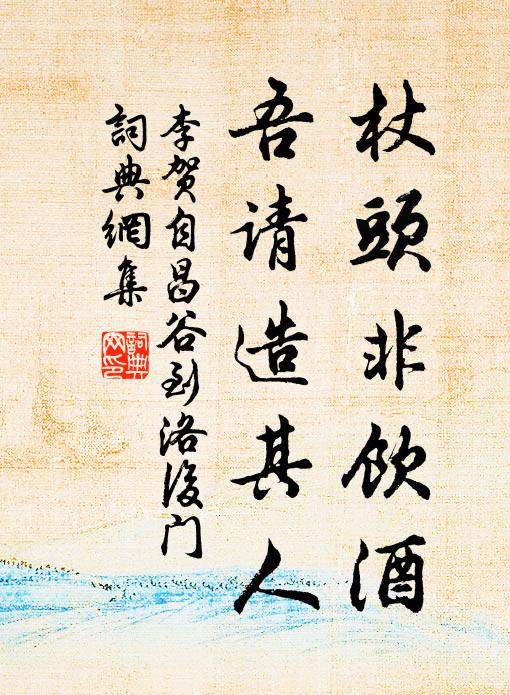 杖頭非飲酒
吾请造其人
李贺自昌谷到洛後门
詞典網集
詞典
网印